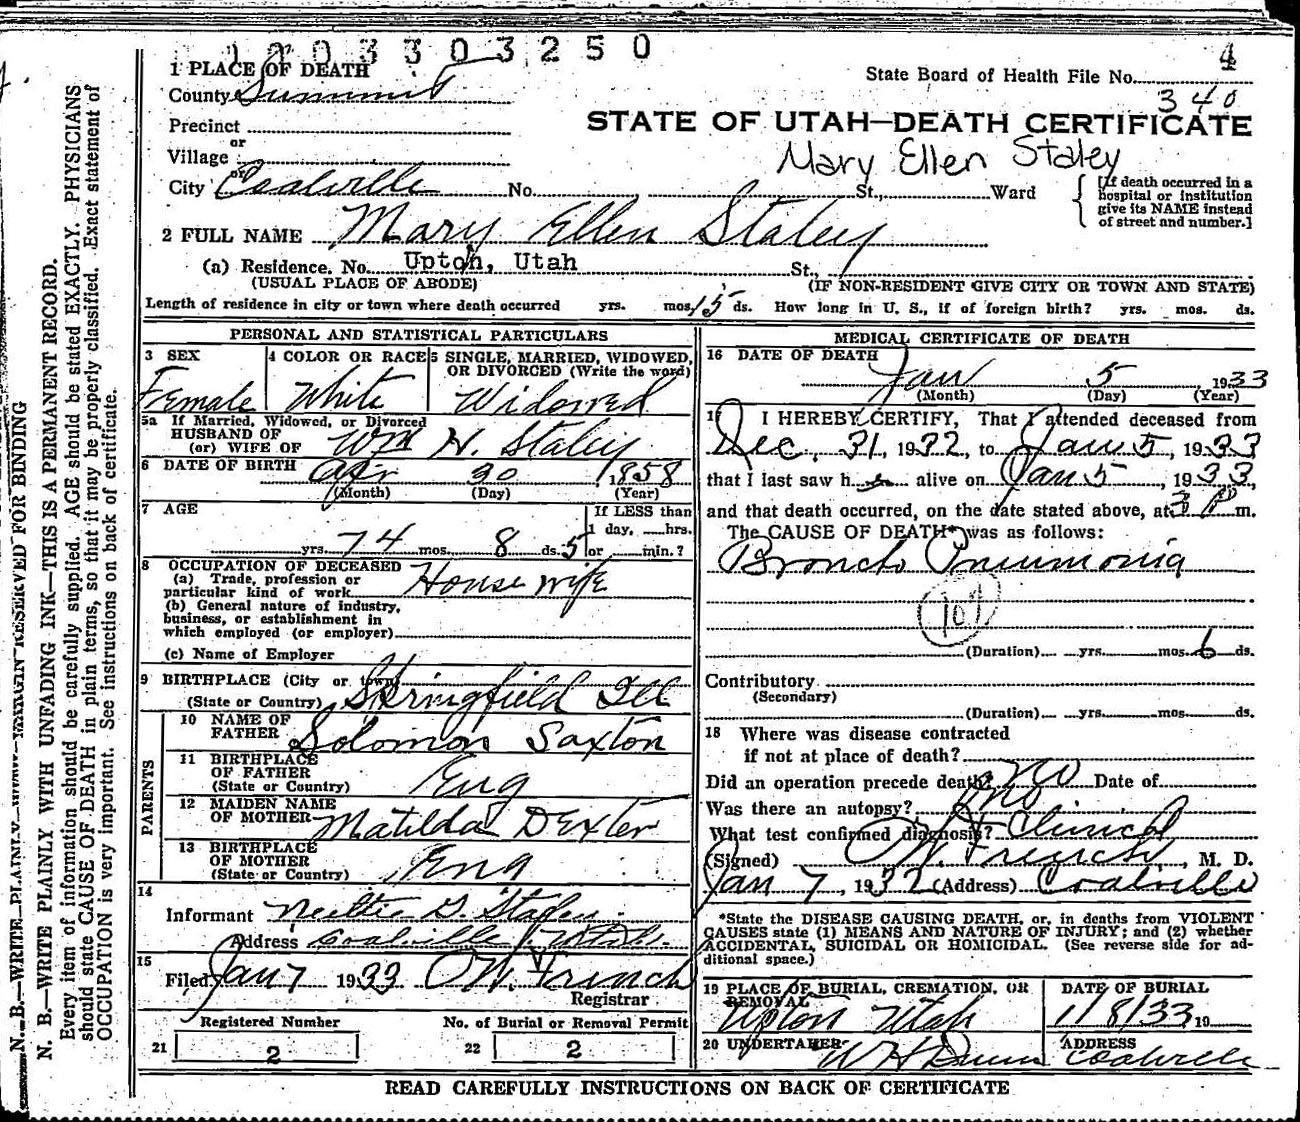 1203303250
1 PLACE OF DEATH
County Summit
State Board of Health File No. 4
340
Precinct
or
Village
or
City Coalville No. St., Ward
STATE OF UTAH—DEATH CERTIFICATE
Mary Ellen Staley
[If death occurred in a
hospital or institution
give its NAME instead
of street and number.]
2 FULL NAME Mary Ellen Staley
(a) Residence. No. Upton, Utah St.,
(USUAL PLACE OF ABODE) (IF NON-RESIDENT GIVE CITY OR TOWN AND STATE)
Length of residence in city or town where death occurred yrs. mos. 15 ds. How long in U. S., if of foreign birth? yrs. mos. ds.
PERSONAL AND STATISTICAL PARTICULARS
3 SEX
Female
4 COLOR OR RACE
White
5 SINGLE, MARRIED, WIDOWED,
OR DIVORCED (Write the word)
Widowed
5a If Married, Widowed, or Divorced
HUSBAND OF
(or) WIFE OF Wm H. Staley
6 DATE OF BIRTH Apr 30 1858
(Month) (Day) (Year)
7 AGE
If LESS than
1 day, hrs.
yrs. 74 mos. 8 ds. 5 or min.?
8 OCCUPATION OF DECEASED
(a) Trade, profession or
particular kind of work House wife
(b) General nature of industry,
business, or establishment in
which employed (or employer)
(c) Name of Employer
9 BIRTHPLACE (City or town)
(State or Country) Springfield Ill
PARENTS
10 NAME OF
FATHER Solomon Saxton
11 BIRTHPLACE
OF FATHER
(State or Country) Eng
12 MAIDEN NAME
OF MOTHER Matilda Dexter
13 BIRTHPLACE
OF MOTHER
(State or Country) Eng
14
Informant G. Staley
Address Coalville, Utah.
15
Filed Jan 7 1933 O W French
Registrar
Registered Number
21 2
No. of Burial or Removal Permit
22 2
MEDICAL CERTIFICATE OF DEATH
16 DATE OF DEATH
Jan 5 1933
(Month) (Day) (Year)
17 I HEREBY CERTIFY, That I attended deceased from
Dec. 31, 1932, to Jan 5, 1933
that I last saw h alive on Jan 5, 1933,
and that death occurred, on the date stated above, at 3 P m.
The CAUSE OF DEATH* was as follows:
Broncho Pneumonia
107
(Duration) yrs. mos. 6 ds.
Contributory
(Secondary)
(Duration) yrs. mos. ds.
18 Where was disease contracted
if not at place of death?
Did an operation precede death? no Date of
Was there an autopsy? no
What test confirmed diagnosis? Clinical
(Signed) O W. French, M. D.
Jan 7, 1932 (Address) Coalville
*State the DISEASE CAUSING DEATH, or, in deaths from VIOLENT
CAUSES state (1) MEANS AND NATURE OF INJURY; and (2) whether
ACCIDENTAL, SUICIDAL OR HOMICIDAL. (See reverse side for ad-
ditional space.)
19 PLACE OF BURIAL, CREMATION, OR
REMOVAL
Upton Utah
DATE OF BURIAL
1/8/33 19
20 UNDERTAKER W H Dunn
ADDRESS
Coalville
READ CAREFULLY INSTRUCTIONS ON BACK OF CERTIFICATE
N. B.—WRITE PLAINLY WITH UNFADING INK—THIS IS A PERMANENT RECORD.
Every item of information should be carefully supplied. AGE should be stated EXACTLY. PHYSICIANS
should state CAUSE OF DEATH in plain terms, so that it may be properly classified. Exact statement of
OCCUPATION is very important. See instructions on back of certificate.